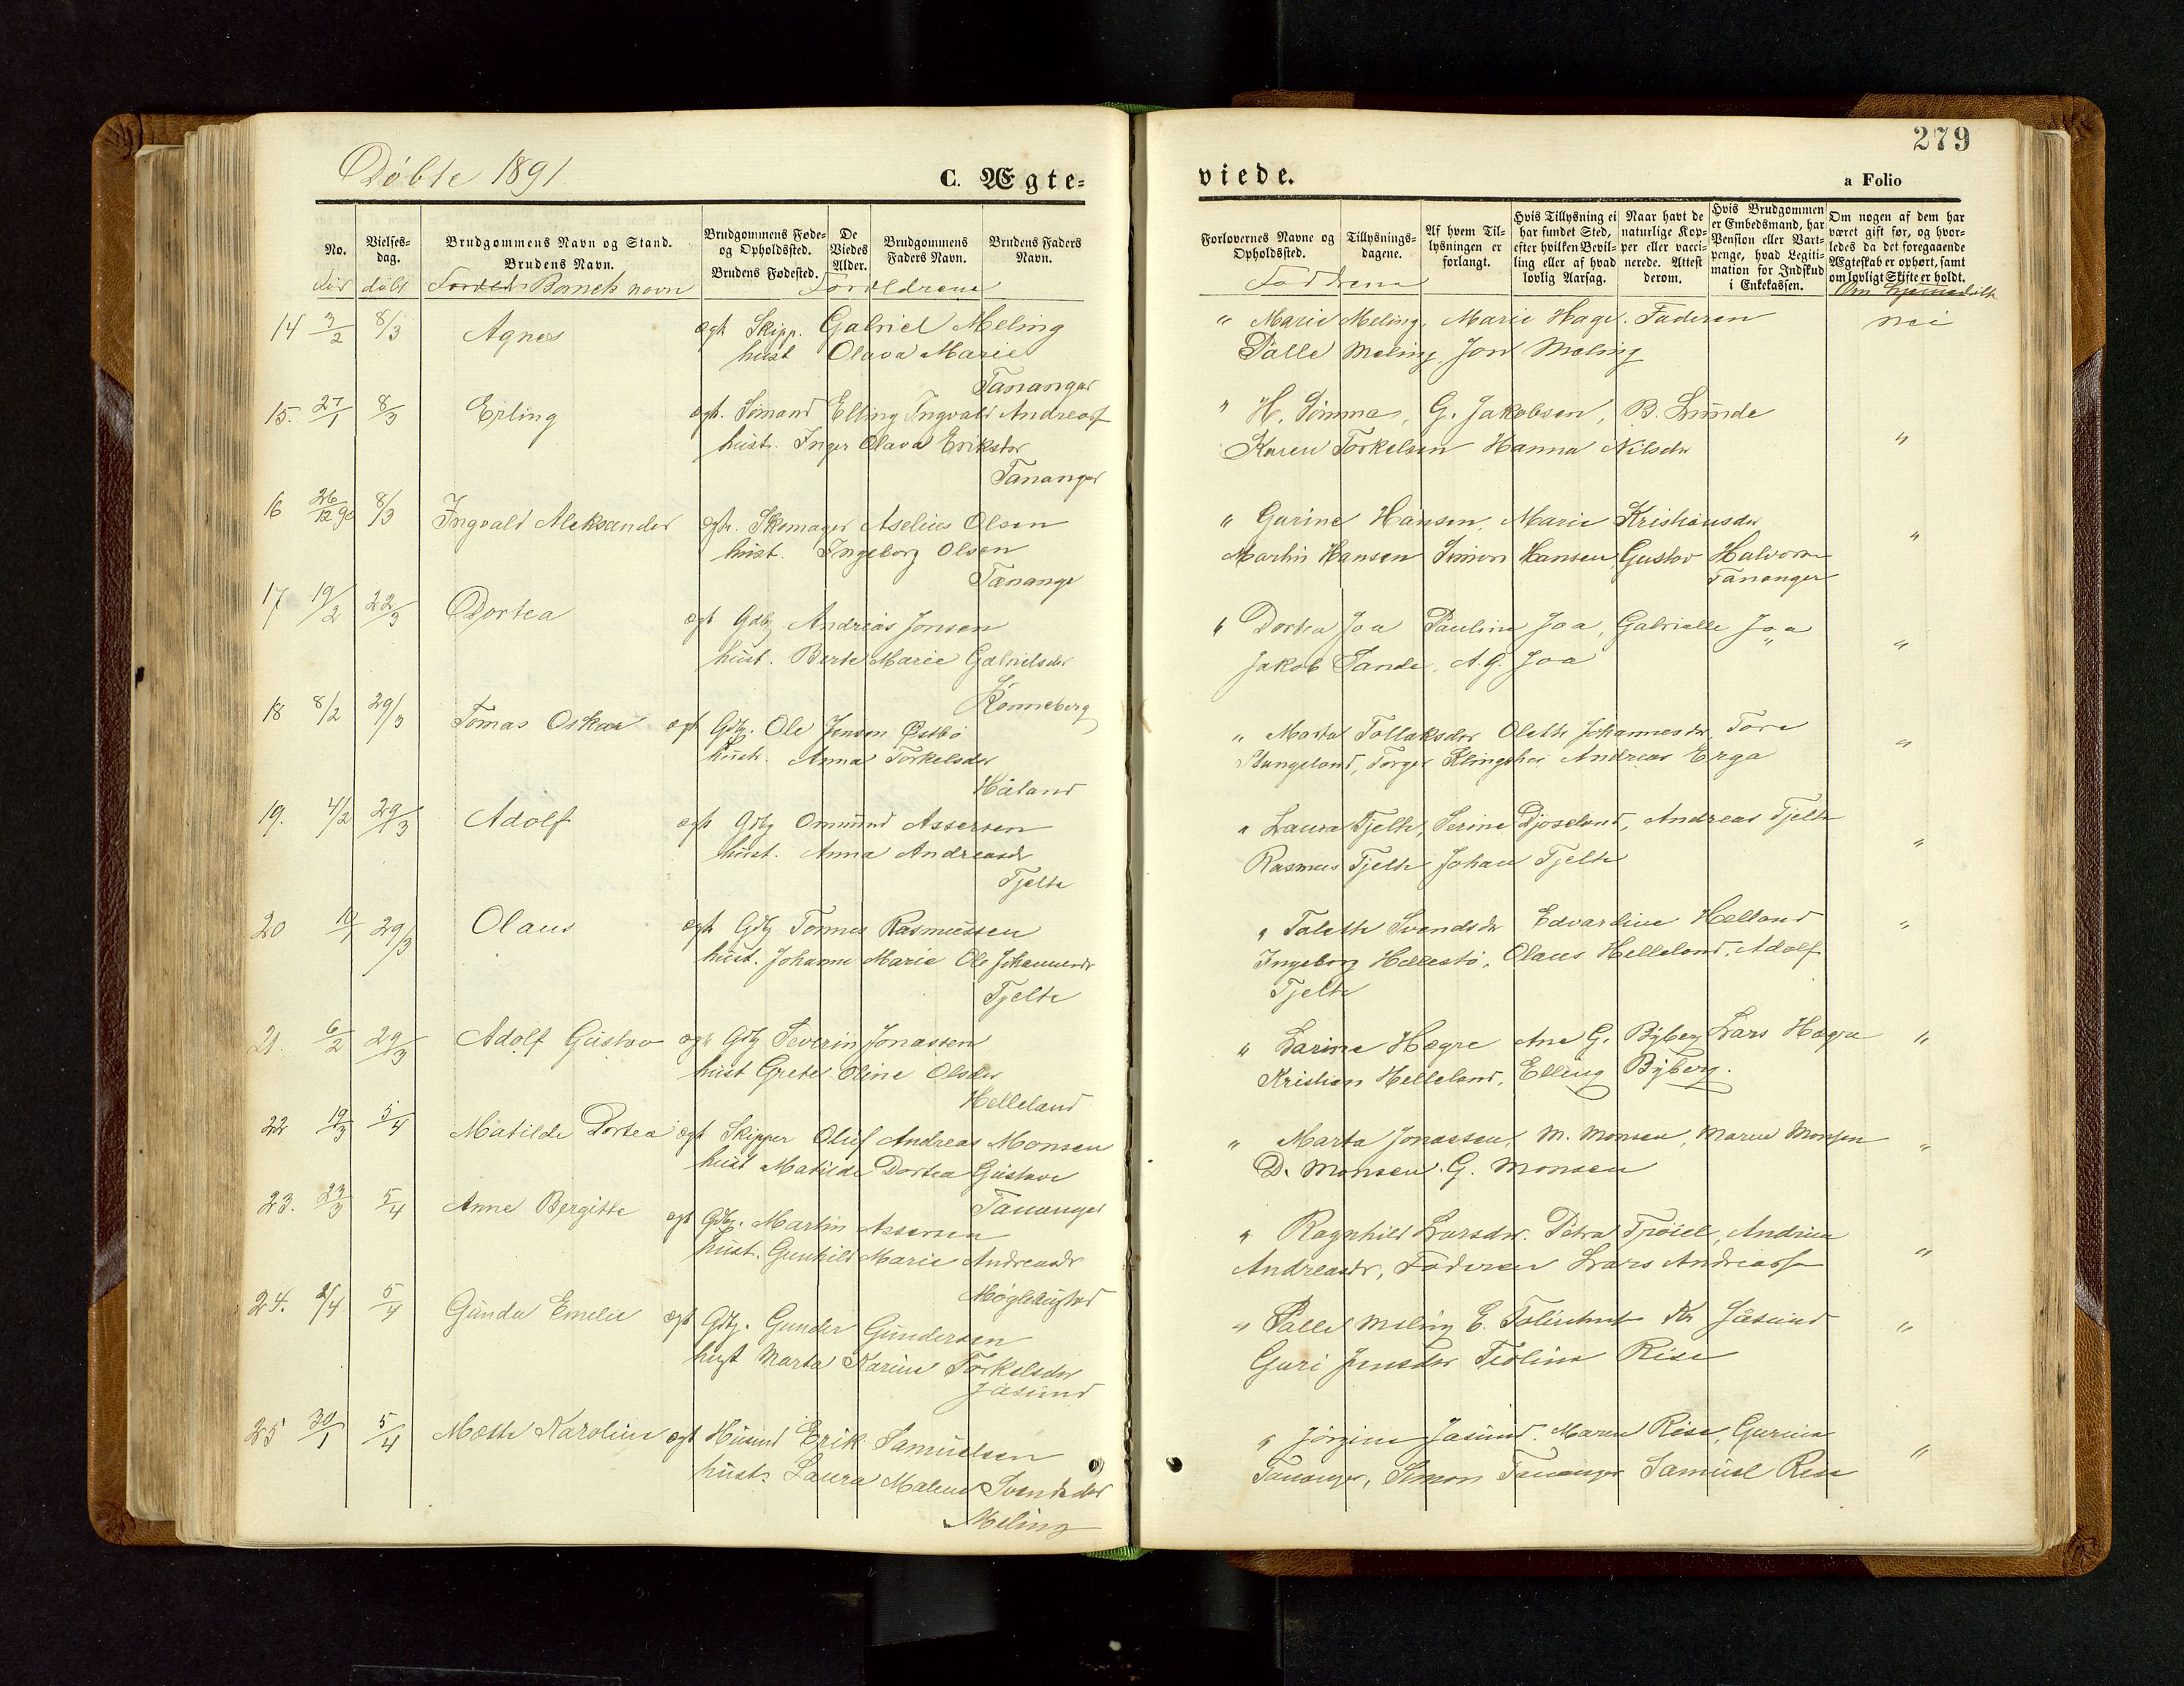 Döbte 1891
C. Ægte=
No.
Vielses-
dag.
Brudgommens Navn og Stand.
Brudens Navn.
Brudgommens Føde=
og Opholdssted.
Brudens Fødested.
De
Viedes
Alder.
Brudgommens
Faders Navn.
Brudens Faders
Navn.
Barnets navn
Foreldrene
14 3/2 8/3 Agnes ægt Skipp. Gabriel Meling
hust Olava Marie
Tananger
15. 27/1 8/3 Erling ægt. Sömand Elling Ingvald Andreass
hust. Inger Olava Eriksdr
Tananger
16 26/12 90 8/3 Ingvald Aleksander ægt. Skomager Aselius Olsen
hust. Ingeborg Olsen
Tananger
17 19/2 22/3 Dortea ægt Gdbg Andreas Jonsen
hust. Berte Marie Gabrielsdr
Könneberg
18 8/2 29/3 Tomas Oskar ægt Gdbg. Ole Jensen Østbö
hust. Anna Torkelsdr
Håland
19. 4/2 29/3 Adolf ægt Gdbg Ommund Assersen
hust. Anna Andreasdr
Tjelte
20 10/1 29/3 Olaus ægt Gdbg Tonnes Rasmussen
hust. Johanne Marie Ole Johannesdr
Tjelte
21. 6/2 29/3 Adolf Gustav ægt Gdbg Severin Jonassen
hust Grete Oline Olsdr
Helleland
22 19/3 5/4 Matilde Dortea ægt Skipper Oluf Andreas Monsen
hust Matilde Dortea Gustava
Tananger
23. 23/3 5/4 Anne Bergitte ægt Gdbg. Martin Assersen
hust. Gunhild Marie Andreasdr
24. 2/4 5/4 Gunda Emelie ægt Gdbg. Gunder Gundersen
hust Marta Karine Torkelsdr
Jåsund
25 30/1 5/4 Mette Karoline ægt Husmd Erik Samuelsen
hust. Laura Malene Svendsdr
Meling
279
viede.
a Folio
Forlovernes Navne og
Opholdssted.
Tillysnings=
dagene.
Af hvem Til=
lysningen er
forlangt.
Hvis Tillysning ei
har fundet Sted,
efter hvilken Bevil=
ling eller af hvad
lovlig Aarsag.
Naar havt de
naturlige Kop=
per eller vacci=
nerede. Attest
derom.
Hvis Brudgommen
er Embedsmand, har
Pension eller Vart=
penge, hvad Legiti=
mation for Indskud
i Enkekassen.
Om nogen af dem har
været gift før, og hvor=
ledes da det foregaaende
Ægteskab er ophørt, samt
om lovligt Skifte er holdt.
Faddrene
Om hjemmedöbt
" Marie Meling, Marie Hage. Faderen nei
Palle Meling Jon Meling
" H. Sömme, G. Jakobsen, B. Lunde
Karen Torkelsen Hanna Nilsdr "
" Gurine Hansen, Marie Kristiansdr
Martin Hansen Simon Hansen Gustav Halvorsen "
Tananger
" Dortea Joa Pauline Joa, Gabrielle Joa
Jakob Sande, A. G. Joa "
" Marta Tollaksdr Olette Johannesdr, Tore
Stangeland, Torger Klingshei Andreas Erga "
" Laura Tjelte, Serine Djoseland, Andreas Tjelte
Rasmus Tjelte Johan Tjelte "
" Talette Svendsdr Edvardine Helland "
Ingeborg Hellestö, Olaus Helleland, Adolf
Tjelte
" Larine Hægre Ane G. Byberg Lars Hægre "
Kristian Helleland, Elling Byberg.
" Marta Jonassen, M. Monsen, Maren Monsen "
D. Monsen. G. Monsen
" Ragnhild Larsdr. Petra Tröiel, Andrea
Andreasdr, Faderen Lars Andreass "
" Palle Meling E. Kr Jåsund "
Guri Jensdr Teoline Risa
" Jörgine Jåsund. Maren Risa, Gurine
Tananger, Simon Tananger Samuel Risa "